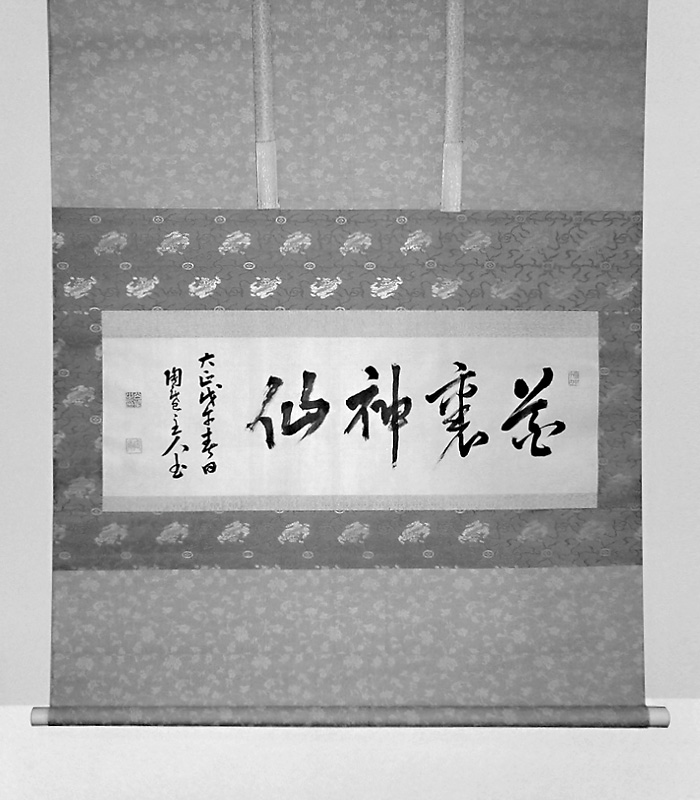 裏神仙
大正戊午春日
陶菴主人書